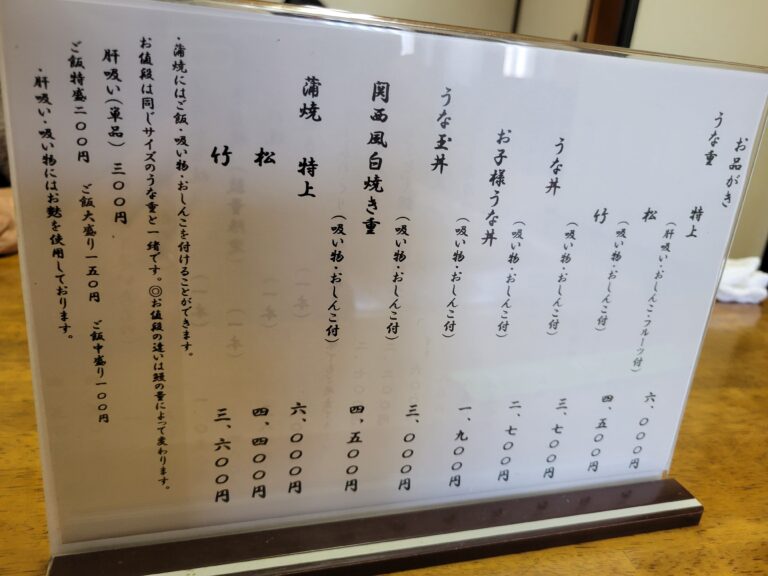 お品がき
うな重
特上（肝吸い・おしんこ・フルーツ付）六、〇〇〇円
松（吸い物・おしんこ付）四、五〇〇円
竹（吸い物・おしんこ付）三、七〇〇円
うな丼（吸い物・おしんこ付）二、七〇〇円
お子様うな丼（吸い物・おしんこ付）一、九〇〇円
うな玉丼（吸い物・おしんこ付）三、〇〇〇円
関西風白焼き重（吸い物・おしんこ付）四、五〇〇円
蒲焼 特上 六、〇〇〇円
松 四、四〇〇円
竹 三、六〇〇円
・蒲焼にはご飯・吸い物・おしんこを付けることができます。
お値段は同じサイズのうな重と一緒です。◎お値段の違いは鰻の量によって変わります。
肝吸い（単品）三〇〇円
ご飯特盛二〇〇円 ご飯大盛り一五〇円 ご飯中盛り一〇〇円
・肝吸い・吸い物にはお麩を使用しております。